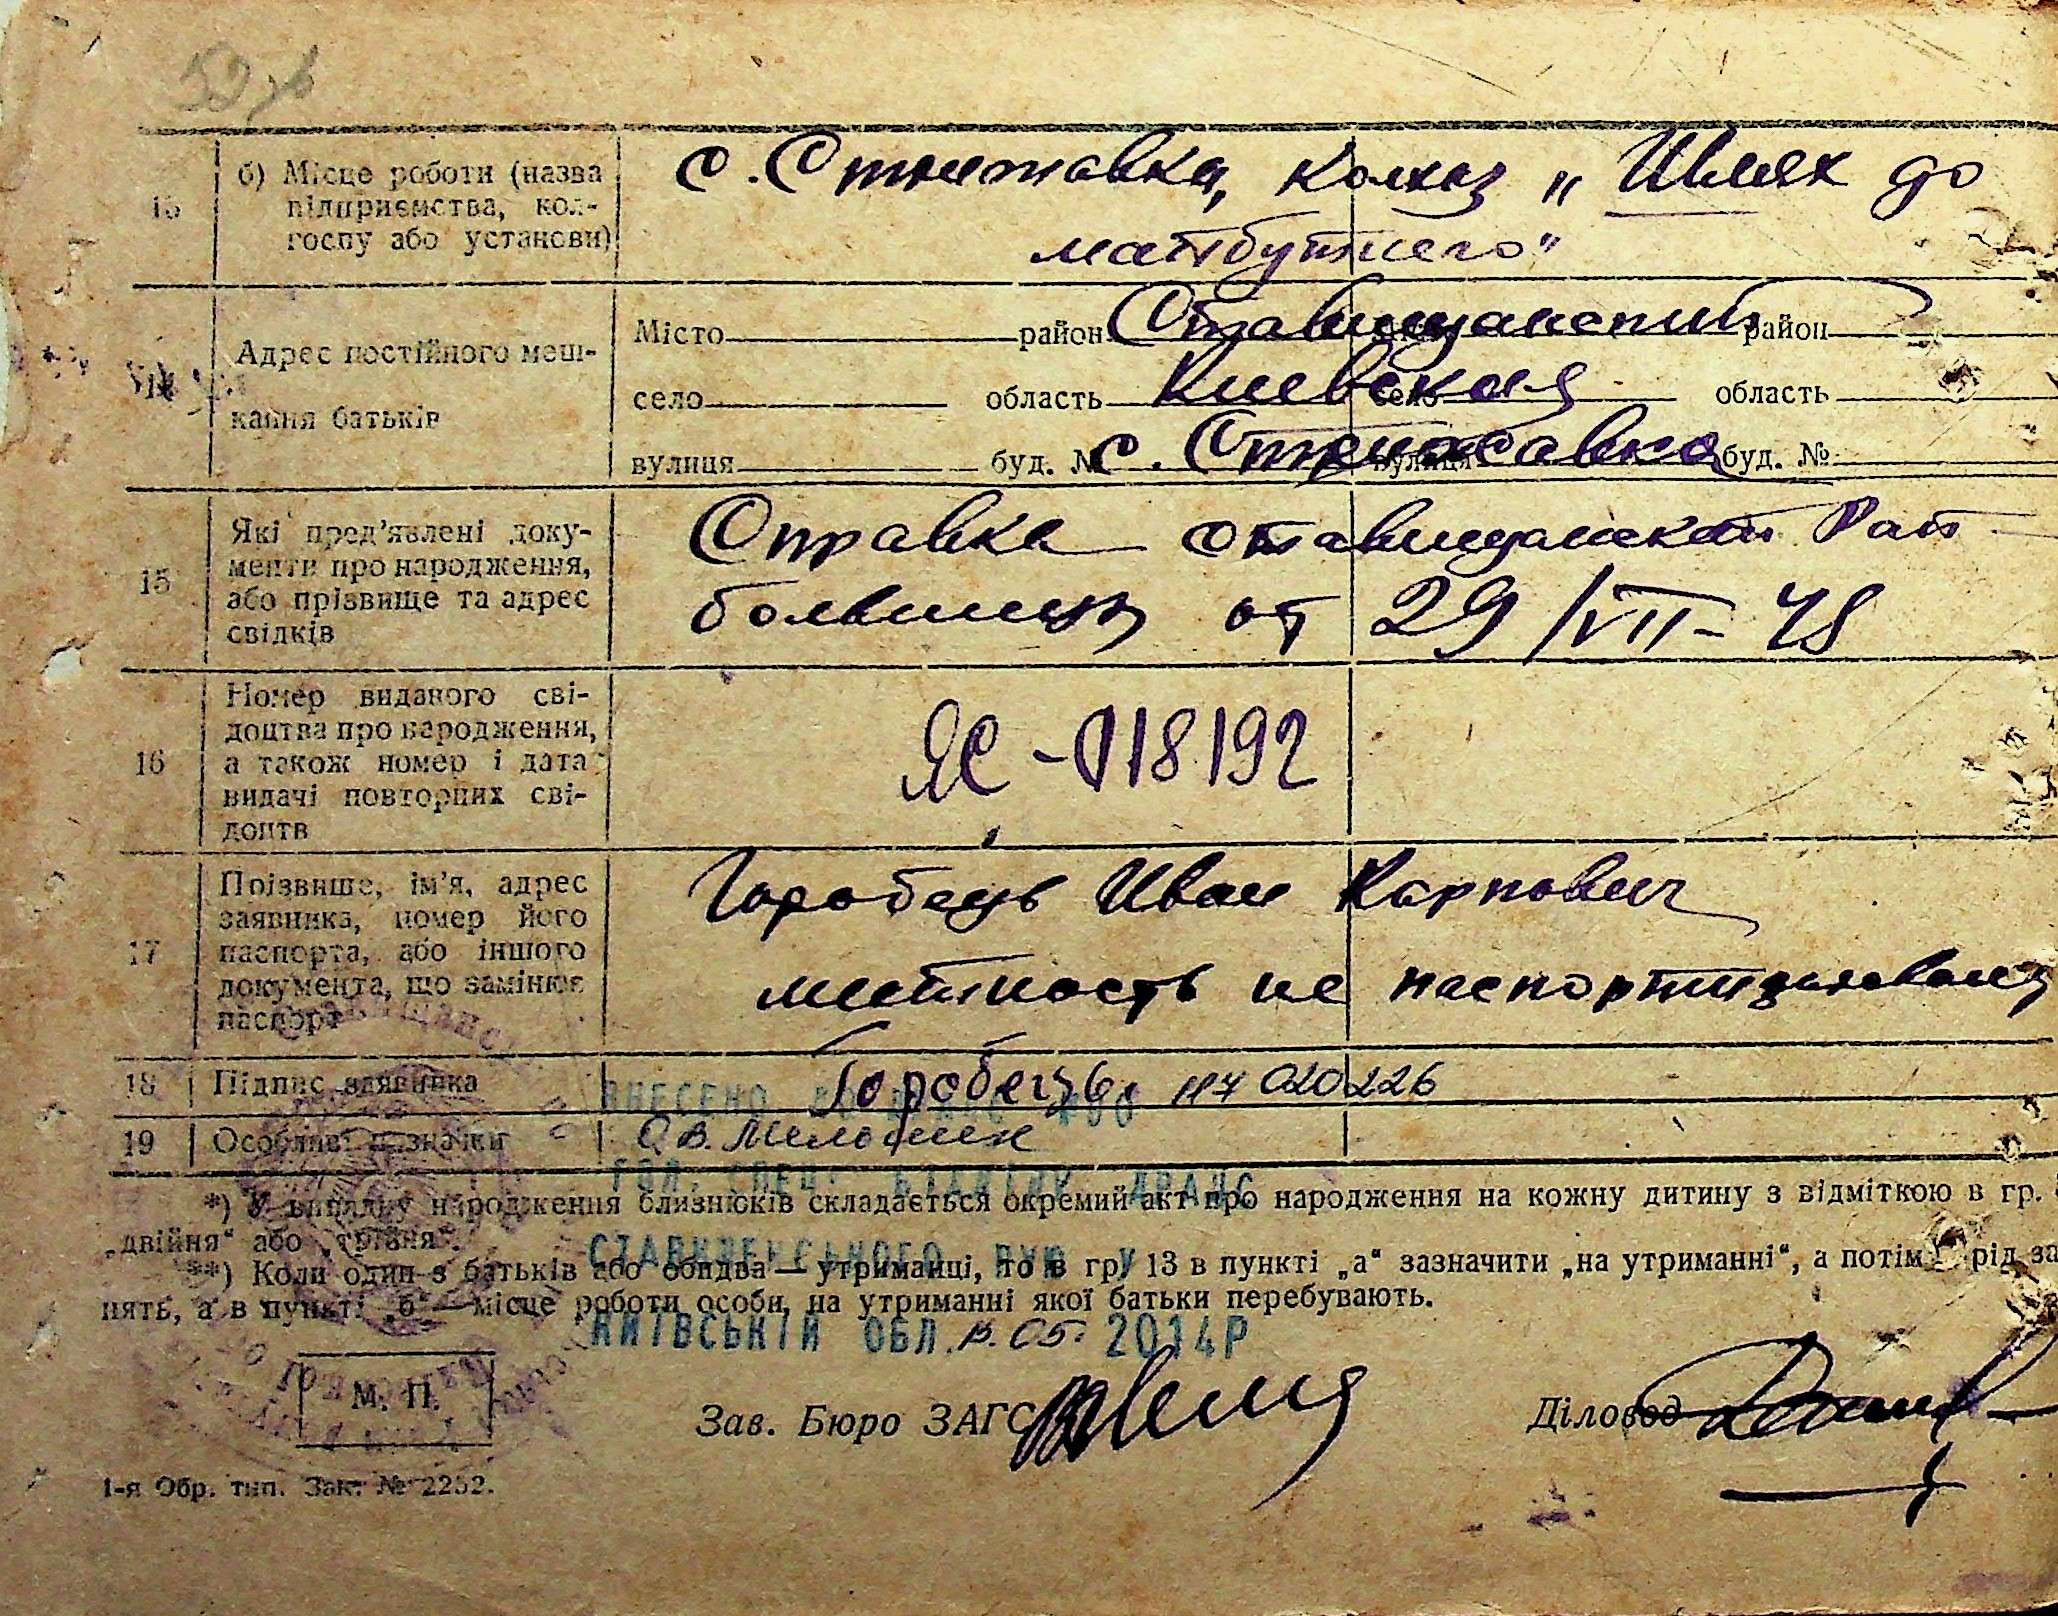 б) Місце роботи (назва
підприємства, кол-
госпу або установи)
с. Стрижавка, колхоз „Шлях до
майбутнего“
14
Адрес постійного меш-
кання батьків
Місто район Ставищанский район
село область Киевская село область
вулиця буд. № с. Стрижавка вулиця буд. №
15
Які пред’явлені доку-
менти про народження,
або прізвище та адрес
свідків
Справка Ставищанской Рай
больницы от 29/VII-48
16
Номер виданого сві-
доцтва про народження,
а також номер і дата
видачі повторних сві-
доцтв
ЯС-018192
17
Прізвище, ім’я, адрес
заявника, номер його
паспорта, або іншого
документа, що замінює
паспорт
Горобець Иван Карпович
местность не паспортизирована
18 Підпис заявника Горобець. 020226
ВНЕСЕНО
19 Особливі зазначки О.В. Мельник
ГОЛ. СПЕЦ. ВІДДІЛУ ДРАЦС
*) У випадку народження близнюків складається окремий акт про народження на кожну дитину з відміткою в гр.
„двійня“ або „трійня“.
СТАВИЩЕНСЬКОГО РУЮ У
**) Коли один з батьків або обидва — утриманці, то в гр. 13 в пункті „а“ зазначити „на утриманні“, а потім рід за-
нять, а в пункті „б“ — місце роботи особи, на утриманні якої батьки перебувають.
КИЇВСЬКІЙ ОБЛ. 05. 2014Р
М. П.
Зав. Бюро ЗАГС
Діловод
1-я Обр. тип. Зак. № 2252.